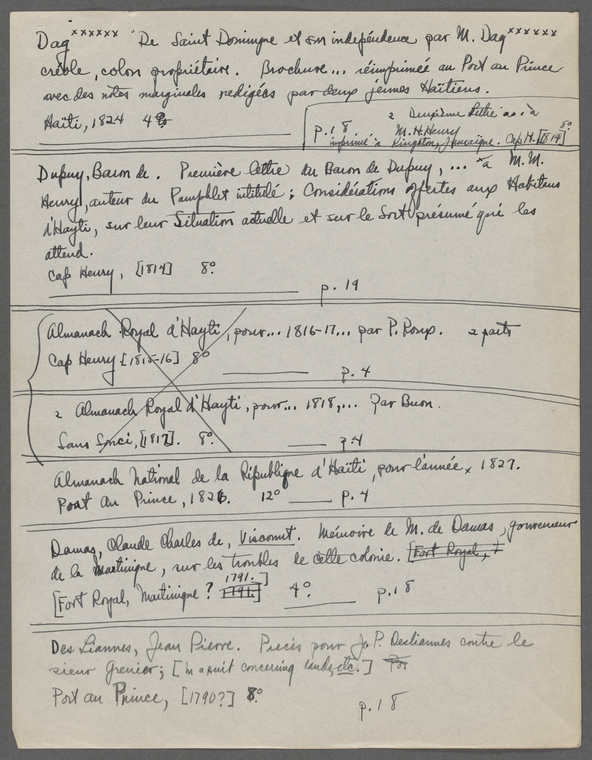 Dag xxxxxx De Saint Domingue et son indépendence par M. Dag xxxxxx
créole, colon propriétaire. Brochure... réimprimée au Port au Prince
avec des notes marginales redigées par deux jeunes Haïtiens.
Haïti, 1824 4º
p. 18
2 Deuxième lettre ... à
M. H. Henry 8º
imprimé à Kingston, Jamaïque. Cap H. [1814]
Dupuy, Baron de. Première lettre du Baron de Dupuy, ... à M. M.
Henry, auteur du Pamphlet intitulé; Considérations offertes aux Habitens
d'Hayti, sur leur Situation actuelle et sur le Sort présumé qui les
attend.
Cap Henry, [1814] 8º.
p. 19
Almanach Royal d'Hayti, pour... 1816-17... par P. Roux. 2 parts
Cap Henry [1815-16] 8º
p. 4
2 Almanach Royal d'Hayti, pour... 1818,... Par Buon.
Sans Souci, [1817]. 8º.
p. 4
Almanach National de la République d'Haïti, pour l'année x 1827.
Port Au Prince, 1826. 12º p. 4
Damas, Claude Charles de, Viscomt. Mémoire de M. de Damas, gouverneur
de la Martinique, sur les troubles de celle colonie. [Fort Royal, ?
1791.]
[Fort Royal, Martinique ? 1791.] 4º. p. 18
Des Liannes, Jean Pierre. Precis pour J. P. Desliannes contre le
sieur Grenier; [in a suit concerning lands, etc.] Por
Port au Prince, [1790?] 8º.
p. 18